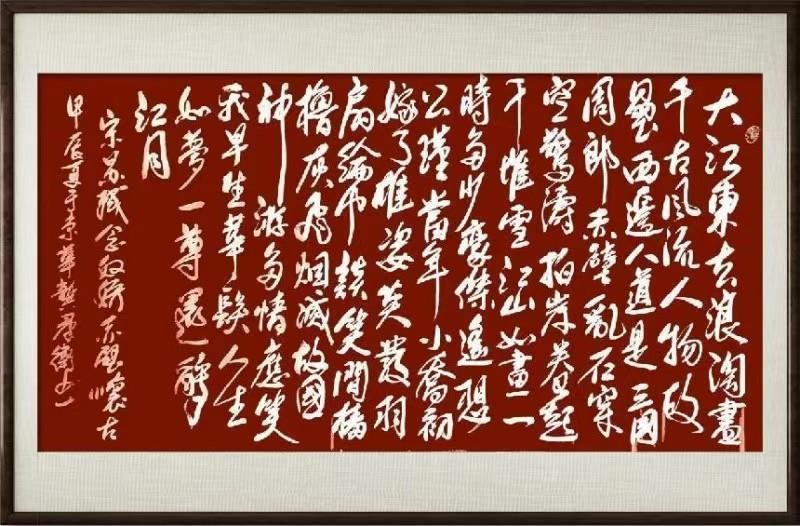 大江東去浪淘盡
千古風流人物故
壘西邊人道是三國
周郎赤壁亂石穿
空驚濤拍岸卷起
千堆雪江山如畫一
時多少豪傑遙想
公瑾當年小喬初
嫁了雄姿英發羽
扇綸巾談笑間檣
櫓灰飛烟滅故國
神游多情應笑
我早生華髮人生
如夢一尊還酹
江月
宋蘇軾念奴嬌赤壁懷古
甲辰夏于京華